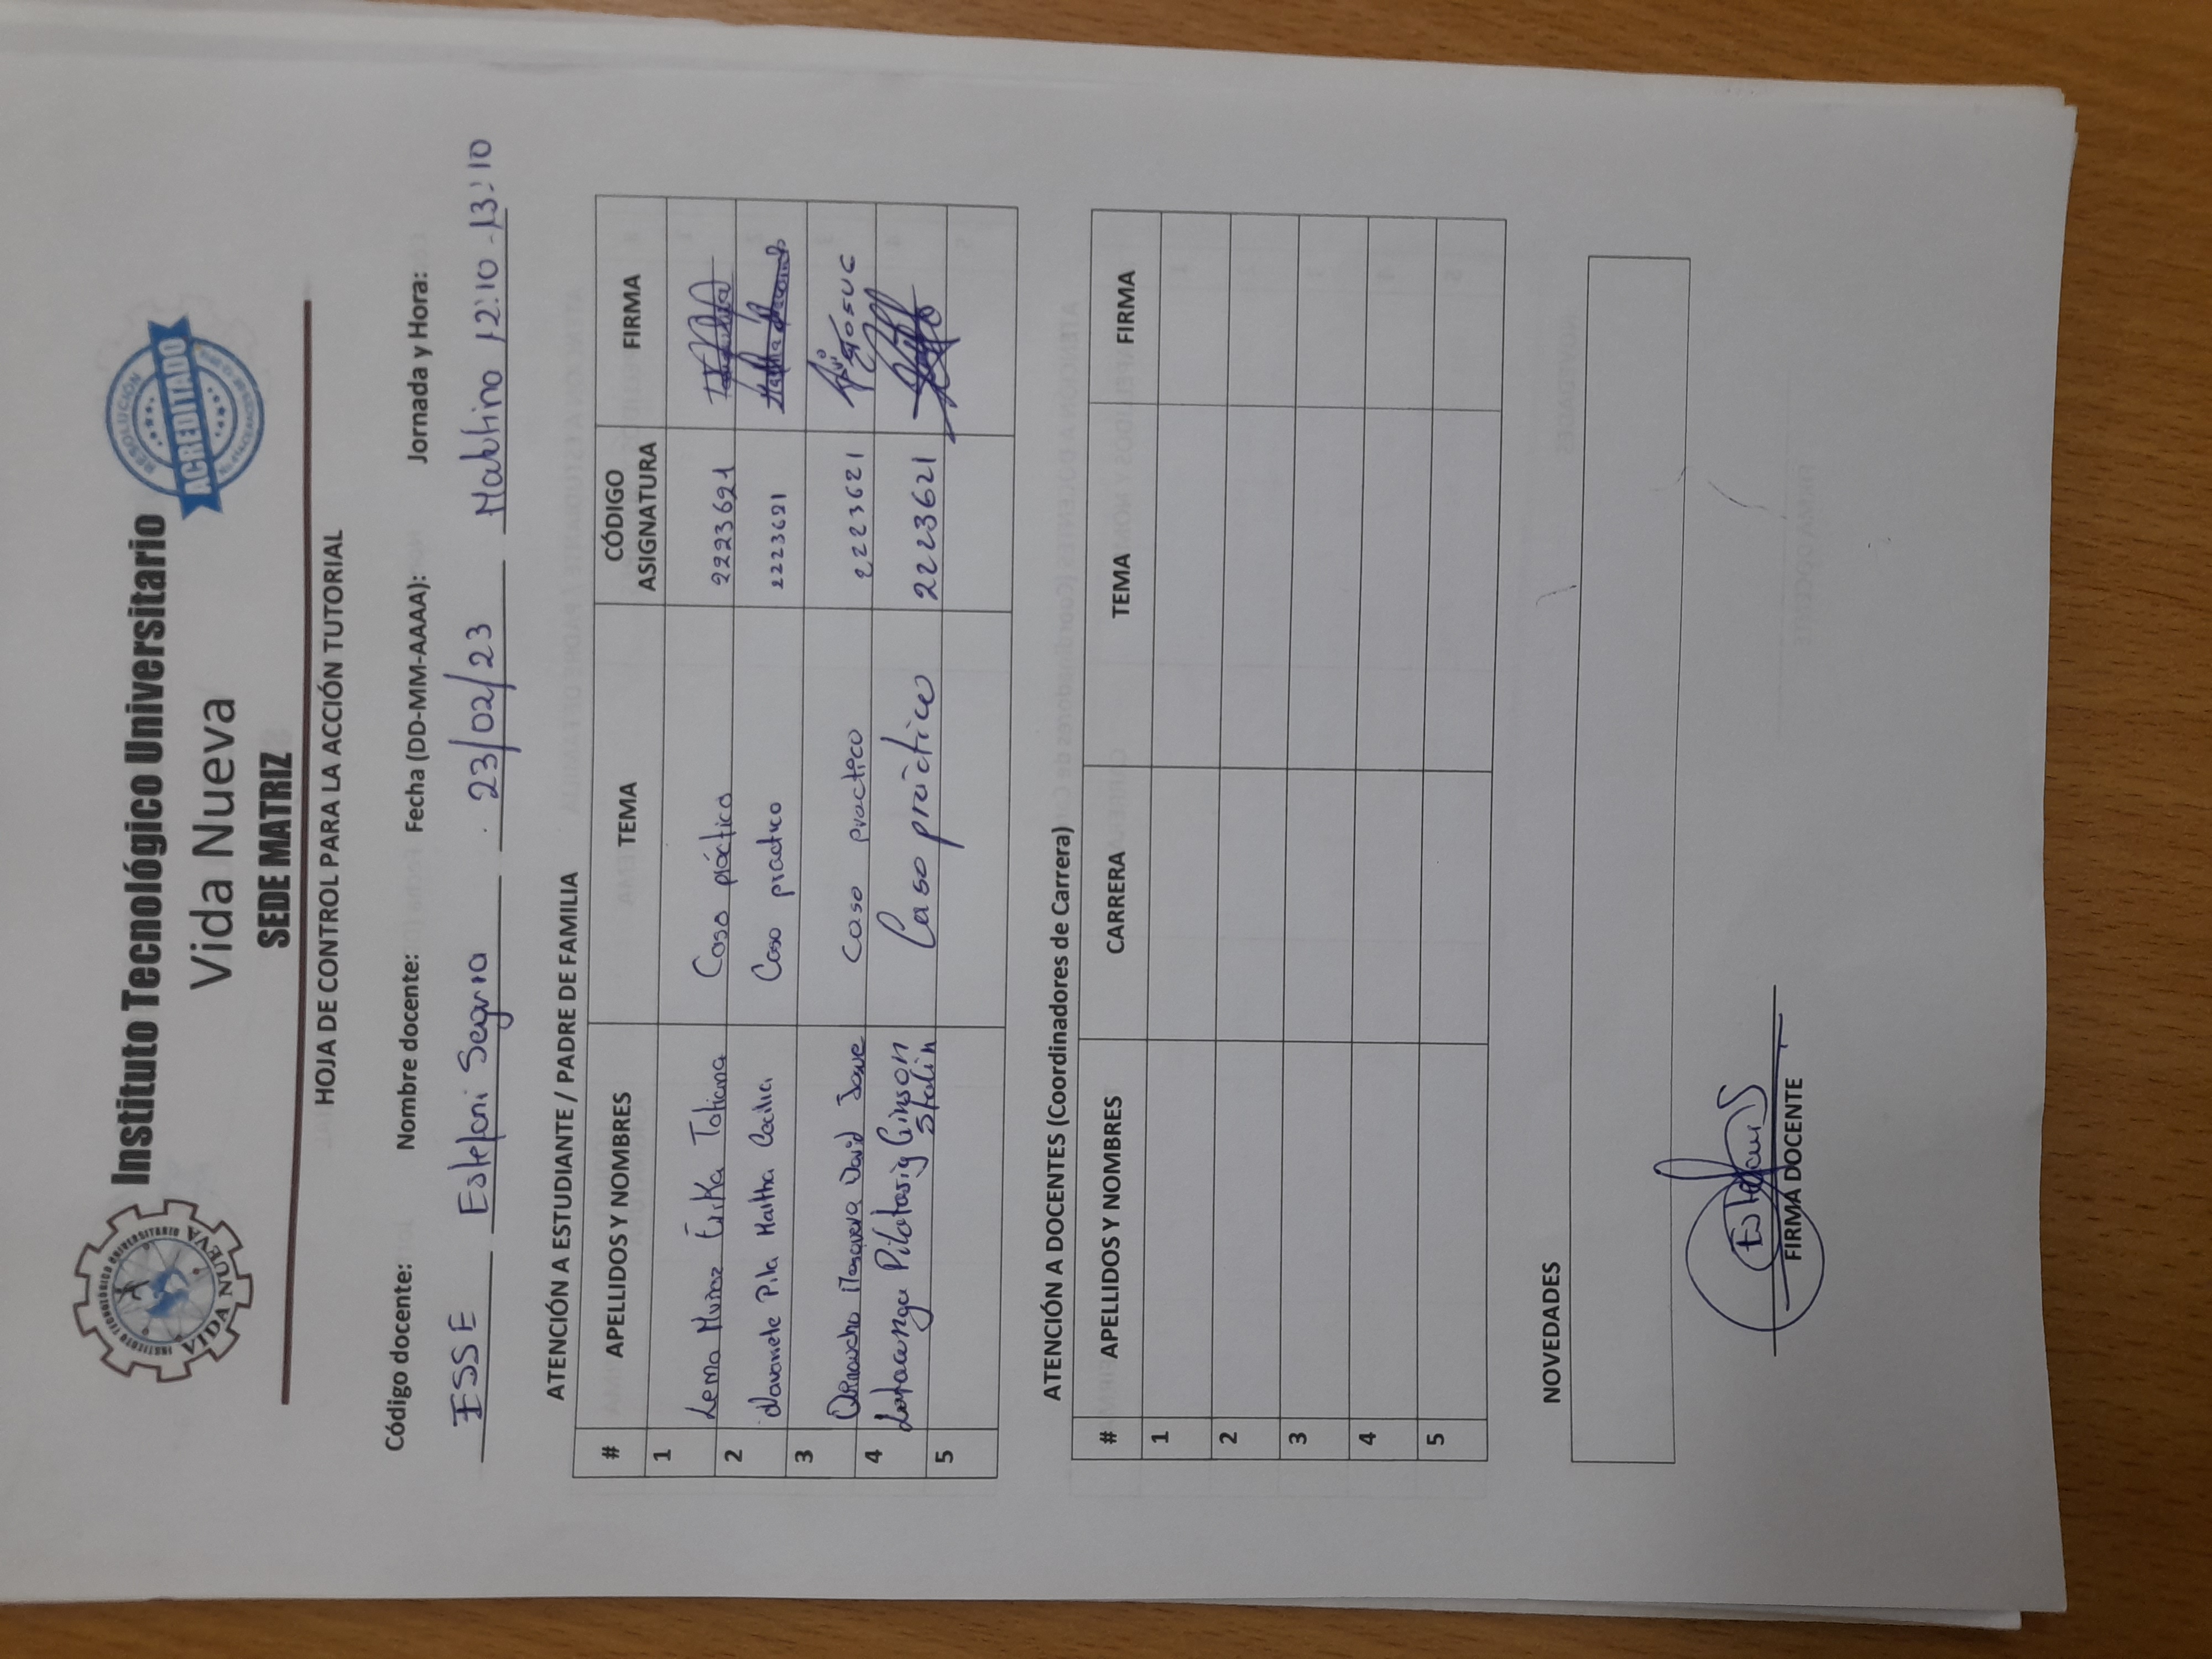 INSTITUTO TECNOLÓGICO UNIVERSITARIO
VIDA NUEVA
Instituto Tecnológico Universitario
Vida Nueva
SEDE MATRIZ
RESOLUCIÓN
ACREDITADO
HOJA DE CONTROL PARA LA ACCIÓN TUTORIAL
Código docente: Nombre docente: Fecha (DD-MM-AAAA): Jornada y Hora:
ESSE Estefani Segura 23/02/23 Matutino 12:10-13:10
ATENCIÓN A ESTUDIANTE / PADRE DE FAMILIA
# APELLIDOS Y NOMBRES TEMA CÓDIGO ASIGNATURA FIRMA
1 Lema Muñoz Erika Tatiana Caso práctico 2223621
2 Navarrete Pila Martha Cecilia Caso practico 2223621
3 David Josue Caso practico 2223621
4 Latacunga Pilatasig Ginson Stalin Caso práctico 2223621
5
ATENCIÓN A DOCENTES (Coordinadores de Carrera)
# APELLIDOS Y NOMBRES CARRERA TEMA FIRMA
1
2
3
4
5
NOVEDADES
Estefani S
FIRMA DOCENTE